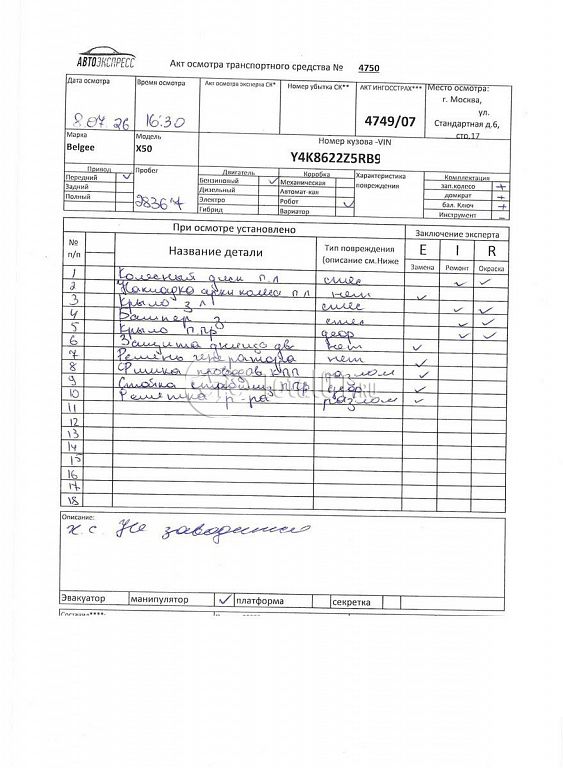 АВТОЭКСПРЕСС
Акт осмотра транспортного средства № 4750
Дата осмотра
8.07.26
Время осмотра
16:30
Акт осмотра эксперта СК*
Номер убытка СК**
АКТ ИНГОССТРАХ***
4749/07
Место осмотра:
г. Москва,
ул.
Стандартная д.6,
стр.17
Марка
Belgee
Модель
X50
Номер кузова -VIN
Y4K8622Z5RB9
Привод
Передний ✓
Задний
Полный
Пробег
Двигатель
Бензиновый ✓
Дизельный
Электро
Гибрид
Коробка
Механическая
Автомат-кая
Робот ✓
Вариатор
Характеристика
повреждения
Комплектация
зап.колесо +
домкрат +
бал. Ключ +
Инструмент -
При осмотре установлено
Заключение эксперта
№
п/п
Название детали
Тип повреждения
(описание см.Ниже
E
I
R
Замена
Ремонт
Окраска
1 Колесный диск п.л ✓ ✓
2 Накладка арки колеса п л нет ✓
3 Крыло з л ✓ ✓
4 Бампер з. ✓ ✓
5 Крыло п.пр дефор ✓ ✓
6 Защита днища дв нет ✓
7 Ремень генератора нет ✓
8 Фишка проводов КПП разлом ✓
9 Стойка стабилиз п.пр дефор ✓
10 Решетка р-ра разлом ✓
11
12
13
14
15
16
17
18
Описание:
х.с. Не заводится
Эвакуатор
манипулятор ✓
платформа
секретка